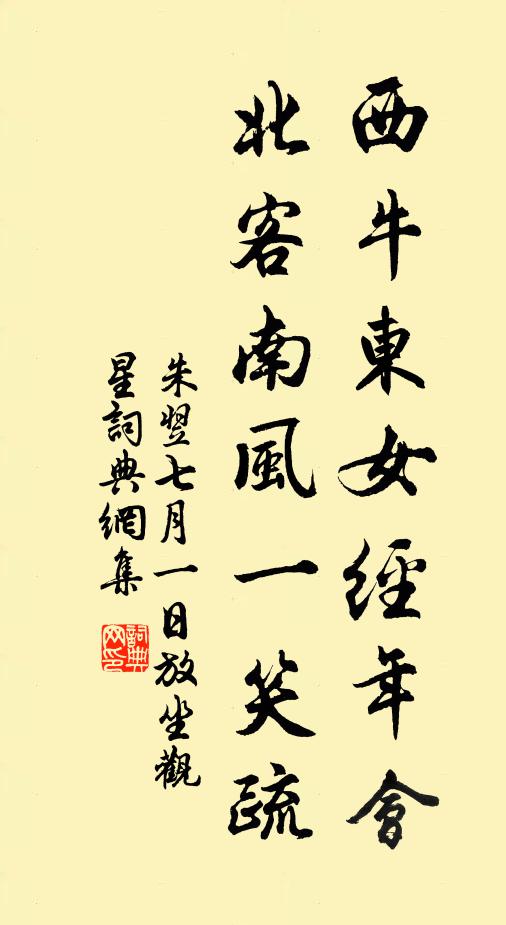 西牛東女經年會
北客南風一笑疏
朱翌七月一日放坐觀
星詞典網集
詞典
网印